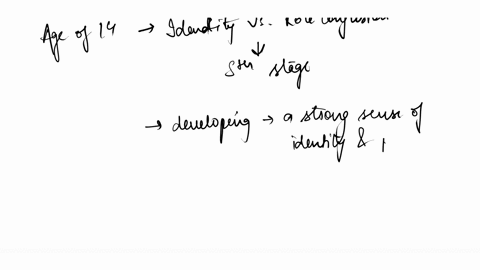 Age of 14 → Identity vs. Role confusion
↓
5th stage
→ developing → a strong sense of
identity &